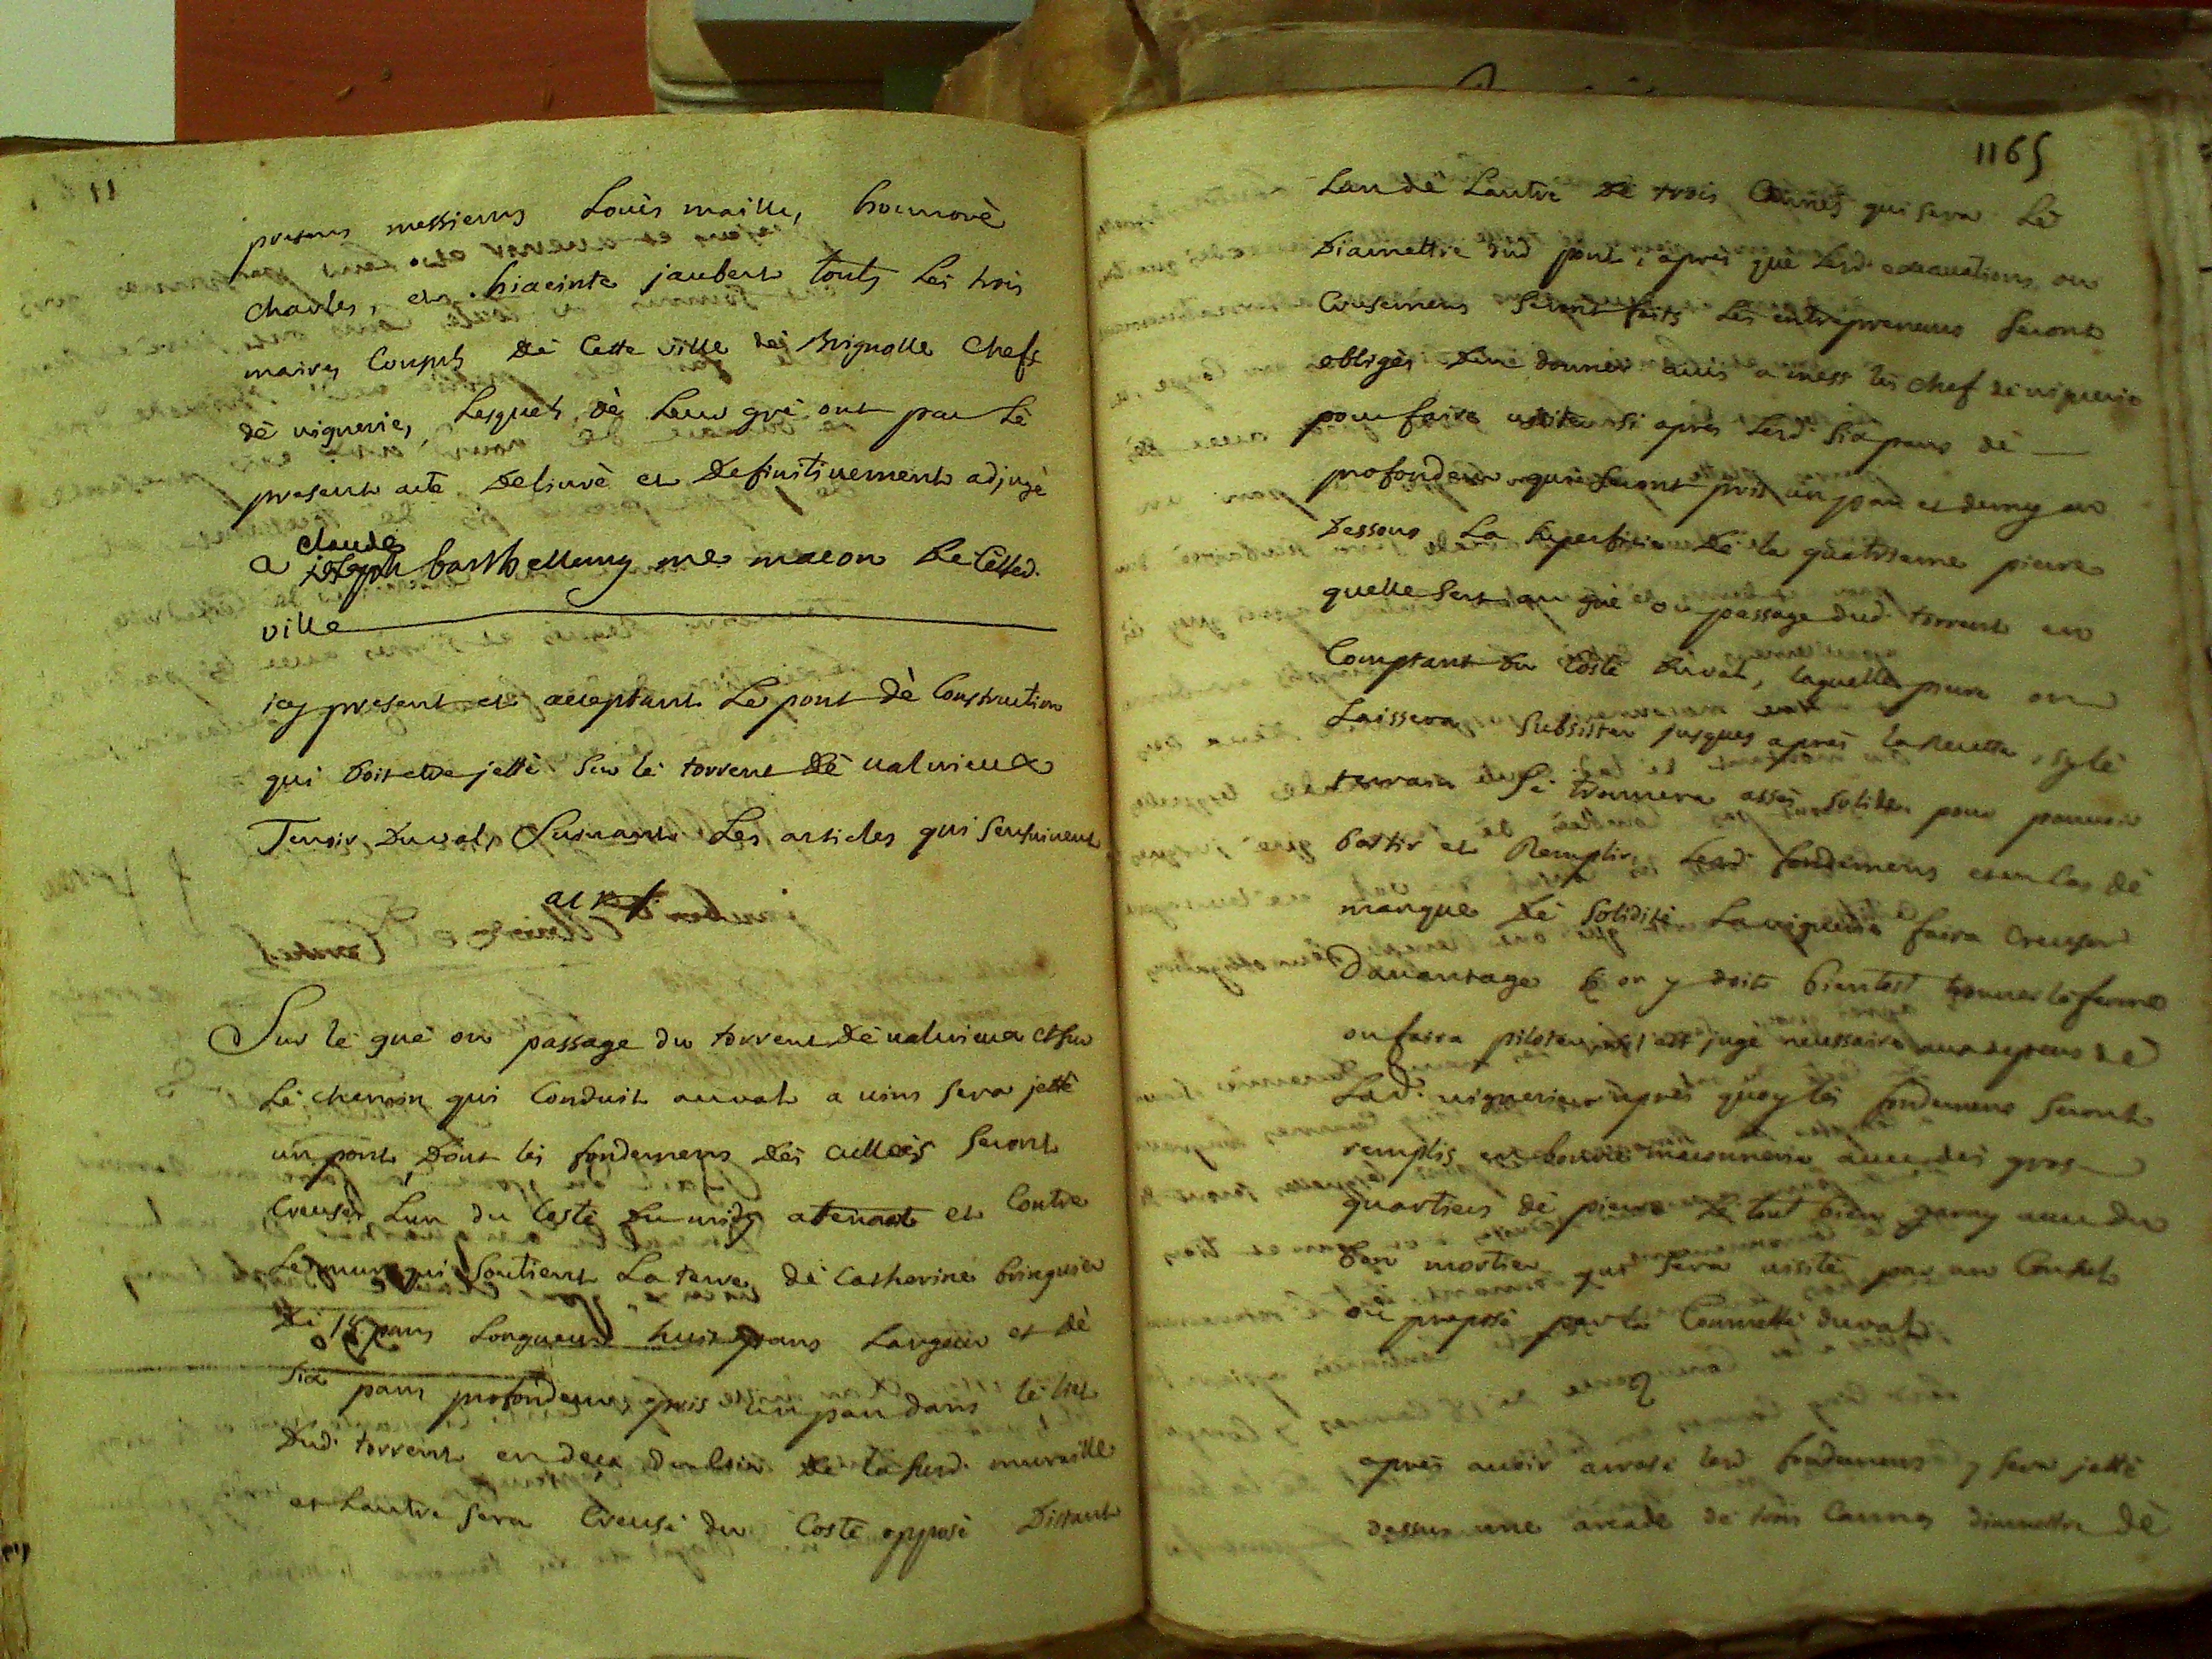 presens messieurs Loüis maille, honnoré
charles, et hiacinte jaubert touts les trois
maires Consuls dé Cette ville dé Brignolle Chefs
dé viguerie, Lesquels dé Leur gré ont par Lé
present acte deliuré et definitiuement adjugé
claude
a joseph barthellemy me macon de Cetted.
ville
icy present et acceptant Lé pont dé Construction
qui doit etre jetté sur lé torrent dé ualurieux
Terroir duval, Suiuant Les articles qui sensuiuent
Sur lé gué ou passage du torrent dé ualurieux et sur
Lé chemin qui Conduit auval a uins sera jetté
un pont, dont lés fondemens dés cullées seront
Creusés, Lun du Costé du midy attenant et Contre
Le mur qui soutient La terre dé Catherine bringuier
dé 18 pans Longueur huit pans Largeur et dé
six pans profondeur, pris un pan dans lé lit
dud. torrent en deça du coin dé la susd. muraille
et Lautre sera Creusé du Costé opposé distant
1165
Lun dé Lautre dé trois Cannes qui sera Lé
diamettre dud pont, aprés que Lesd. excauations ou
Creusemens seront faits Lés entrepreneurs seront
obligés den donner auis a mess les chef dé viguerie
pour faire uisiter si aprés Lesd. six pans dé
profondeur qui seront pris un pan et demy au
dessous La superficie dé la quatrieme pierre
quelle sert au gué ou passage dud. torrent en
Comptant du Costé duval, laquelle piere on
Laissera subsister jusques aprés la Recette, sy lé
terrain sé trouuera assés solide pour pouuoir
battir et Remplir Lesd. fondemens et en Cas dé
manque dé soliditè La viguerie faira Creuser
dauantage on y doit bientost trouuer lé ferme
ou faira piloter jugé neussaire aux depens dé
Lad. uiguerie aprés quoy lés fondemens seront
remplis en bonne maconnerie auec dés gros
quartiers dé pierre Lé tout bien garny auec du
bon mortier qui sera uisité par un Consul
ou preposé par la Commeté duval
aprés auoir arrasé lesd fondemens y sera jetté
dessus une arcade dé trois Cannes diametre dé